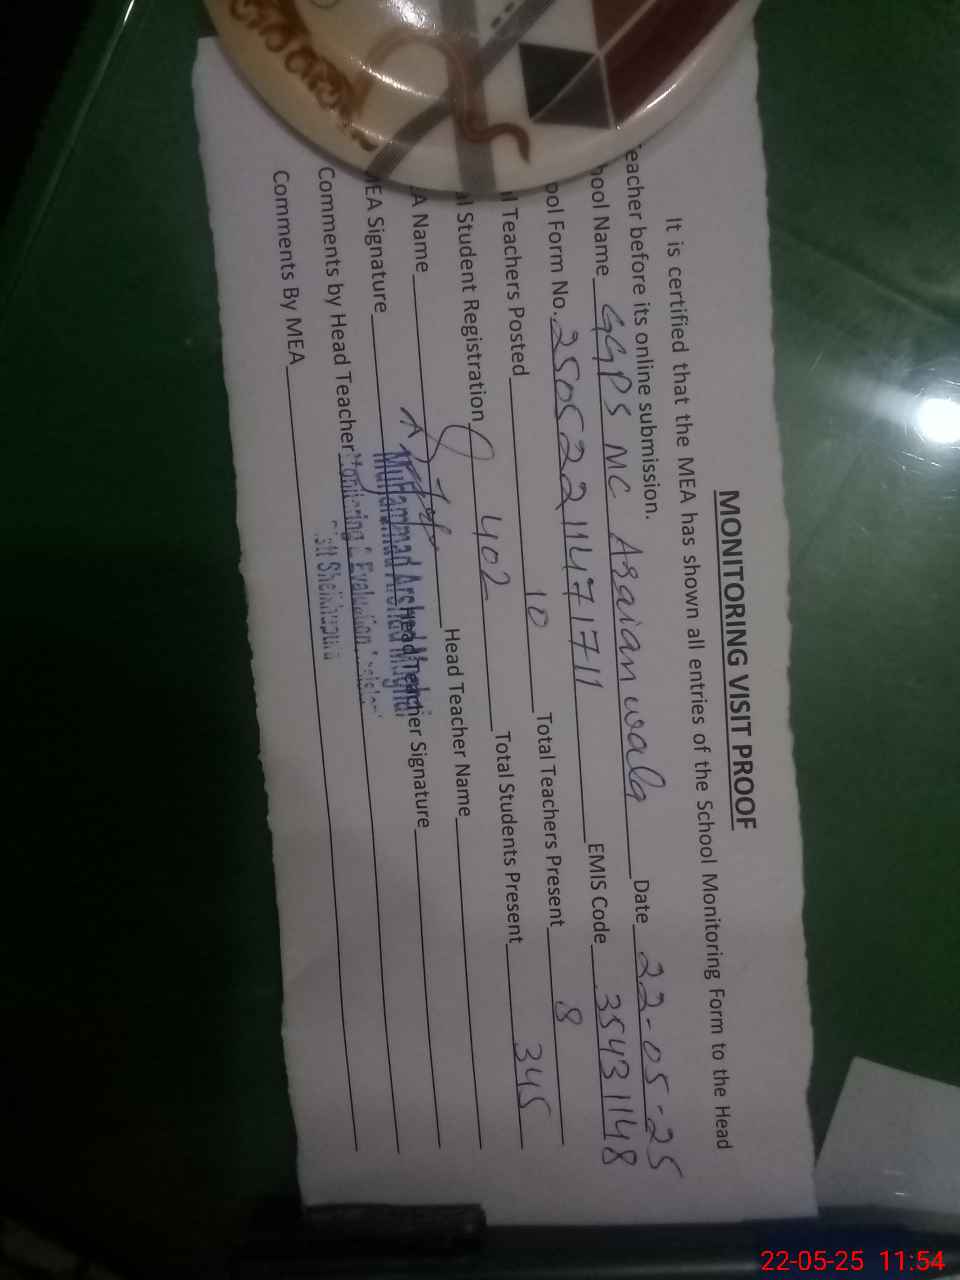 MONITORING VISIT PROOF
It is certified that the MEA has shown all entries of the School Monitoring Form to the Head
eacher before its online submission.
ool Name GGPS MC Asaianwala Date 22-05-25
ool Form No. 25052211471711 EMIS Code 35431148
l Teachers Posted 10 Total Teachers Present 8
al Student Registration 402 Total Students Present 345
A Name Head Teacher Name
EA Signature Head Teacher Signature
Muhammad Arshad Mughal
Comments by Head Teacher
Monitoring & Evaluation Assistant
Distt Sheikhupura
Comments By MEA
22-05-25 11:54